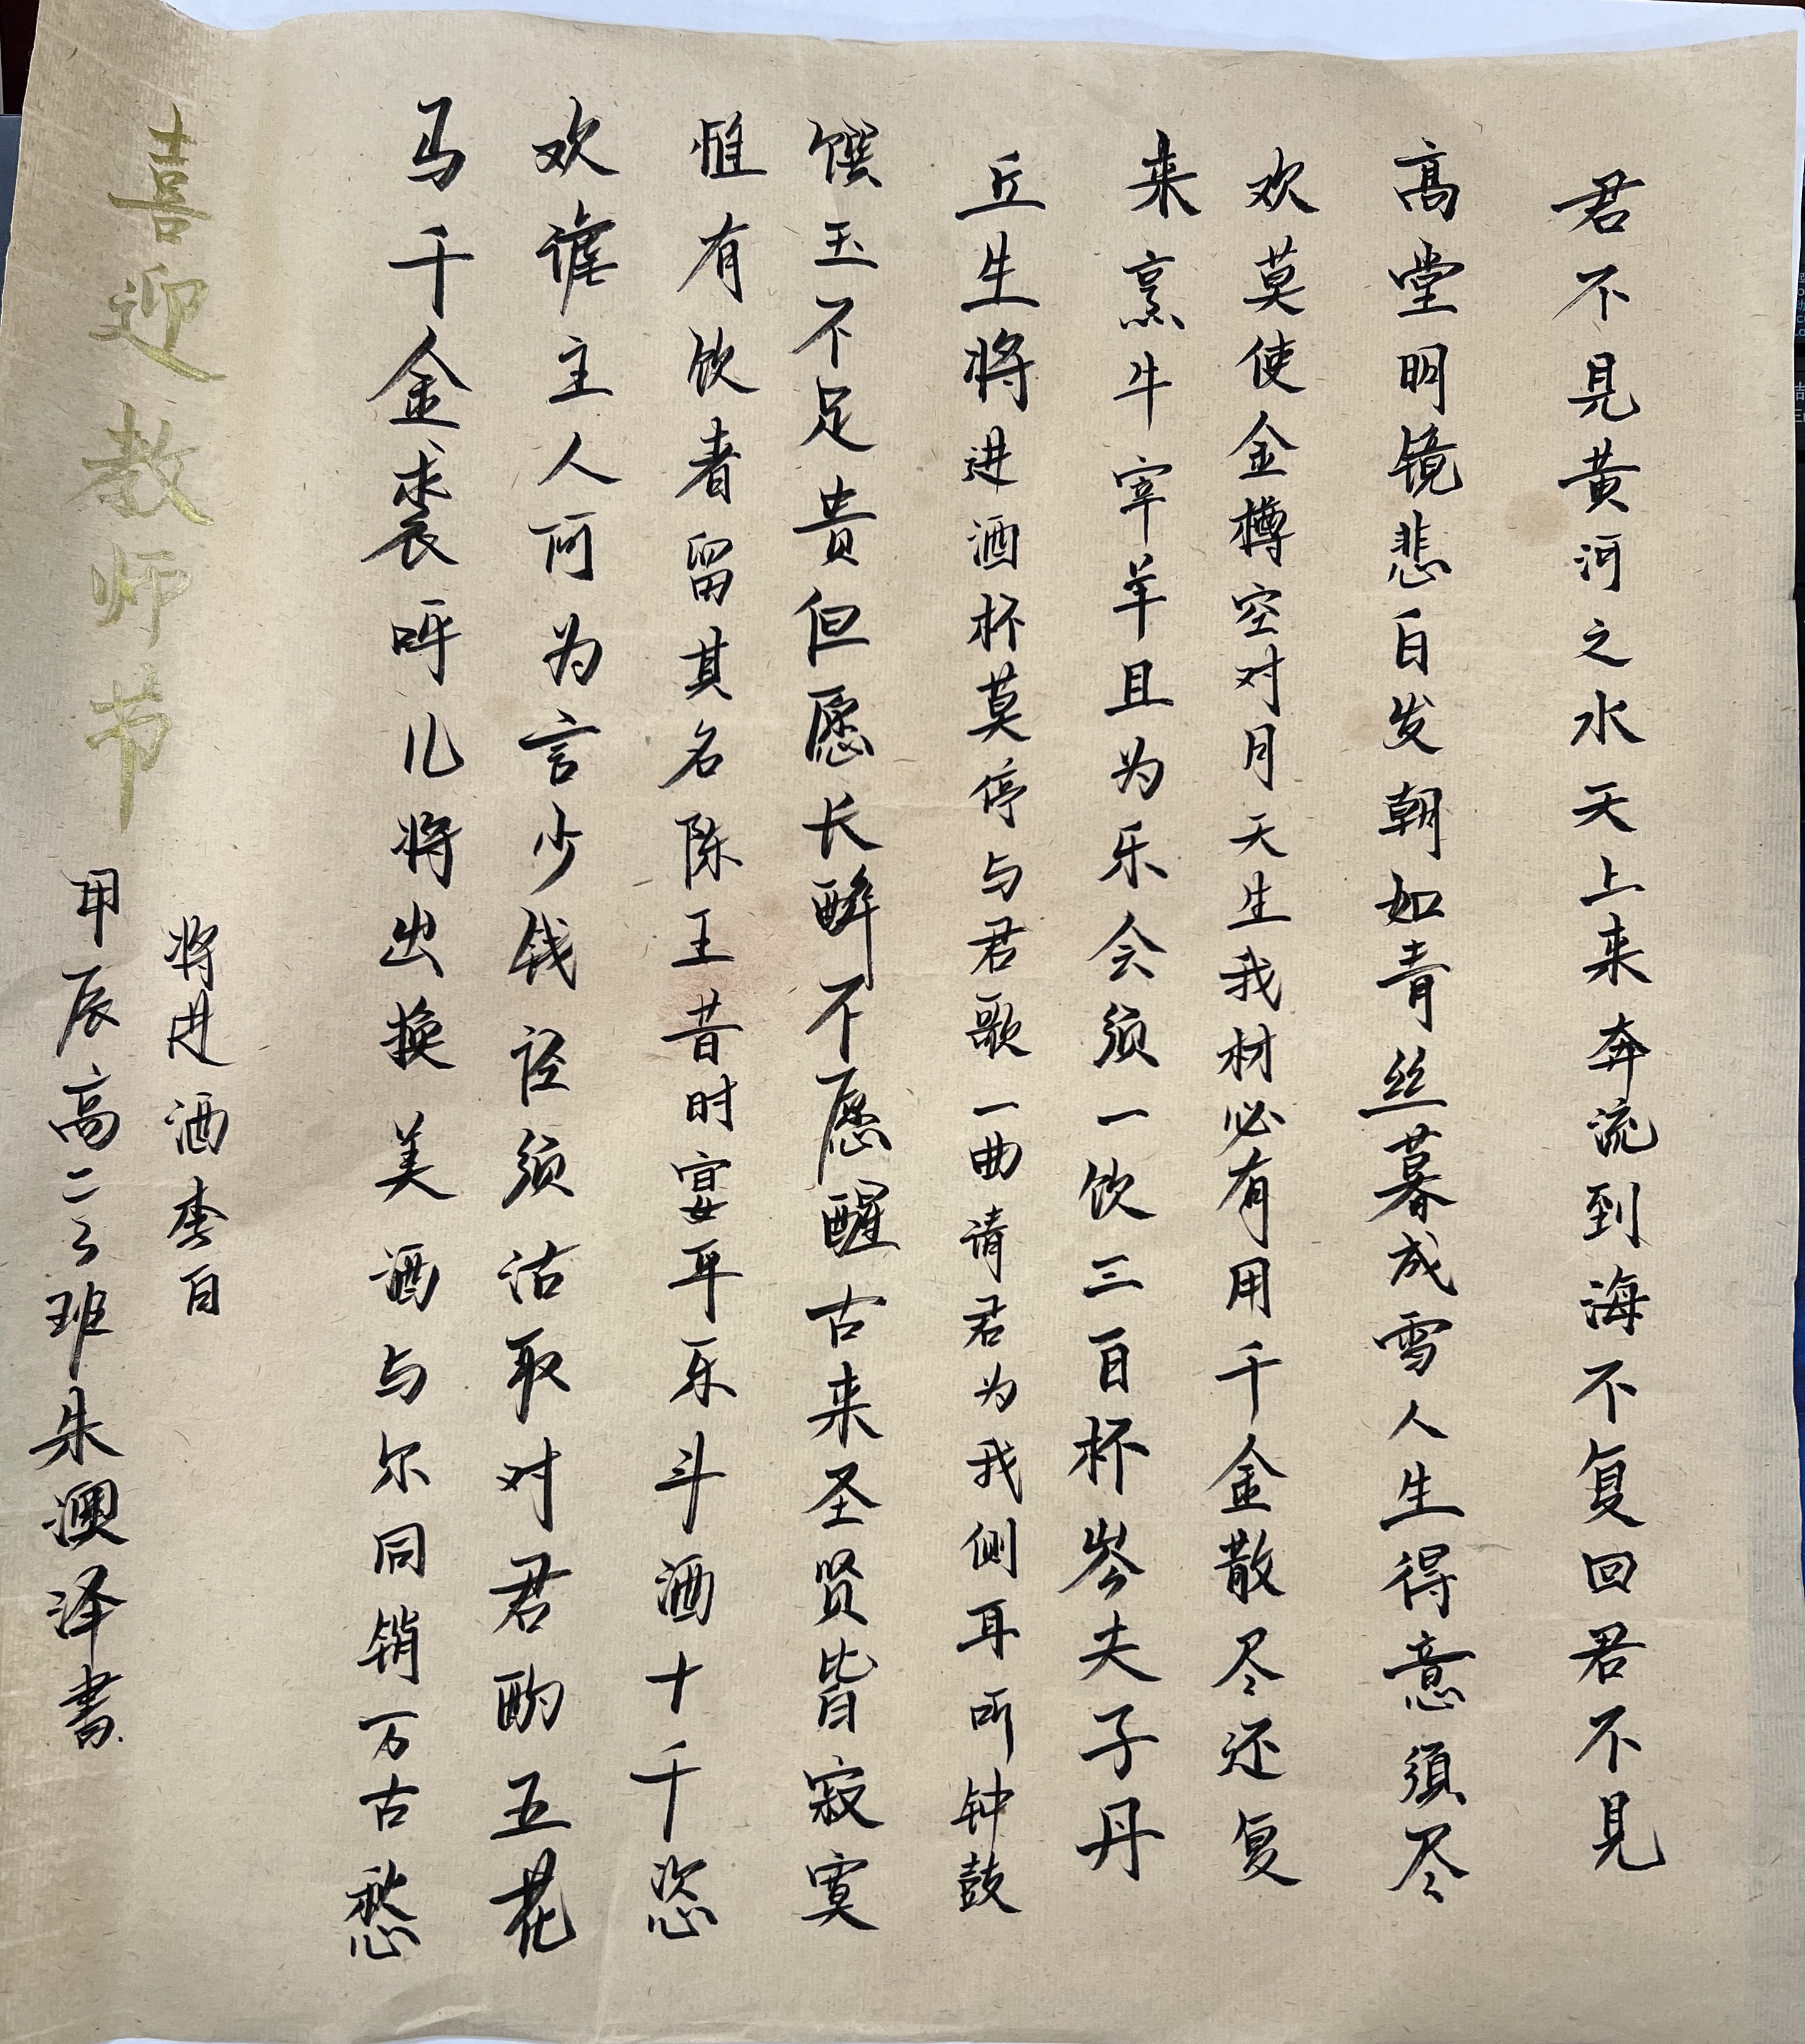 君不見黄河之水天上来奔流到海不复回君不見
高堂明镜悲白发朝如青丝暮成雪人生得意須尽
欢莫使金樽空对月天生我材必有用千金散尽还复
来烹牛宰羊且为乐会须一饮三百杯岑夫子丹
丘生将进酒杯莫停与君歌一曲请君为我侧耳听钟鼓
馔玉不足贵但愿长醉不愿醒古来圣贤皆寂寞
惟有饮者留其名陈王昔时宴平乐斗酒十千恣
欢谑主人何为言少钱径须沽取对君酌五花
马千金裘呼儿将出换美酒与尔同销万古愁
将进酒李白
喜迎教师节
甲辰高二3班朱澳泽書